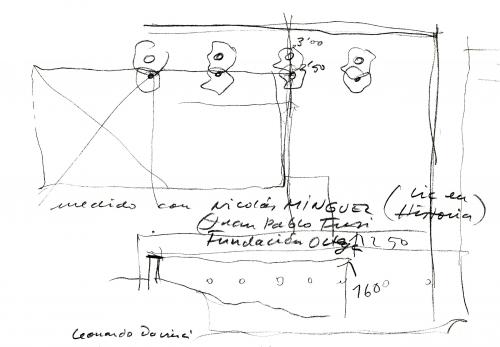 3'00
2'50
medido con NICOLÁS MÍNGUEZ (Lic en
Historia)
Juan Pablo
Fundación 250
160
Leonardo Davinci